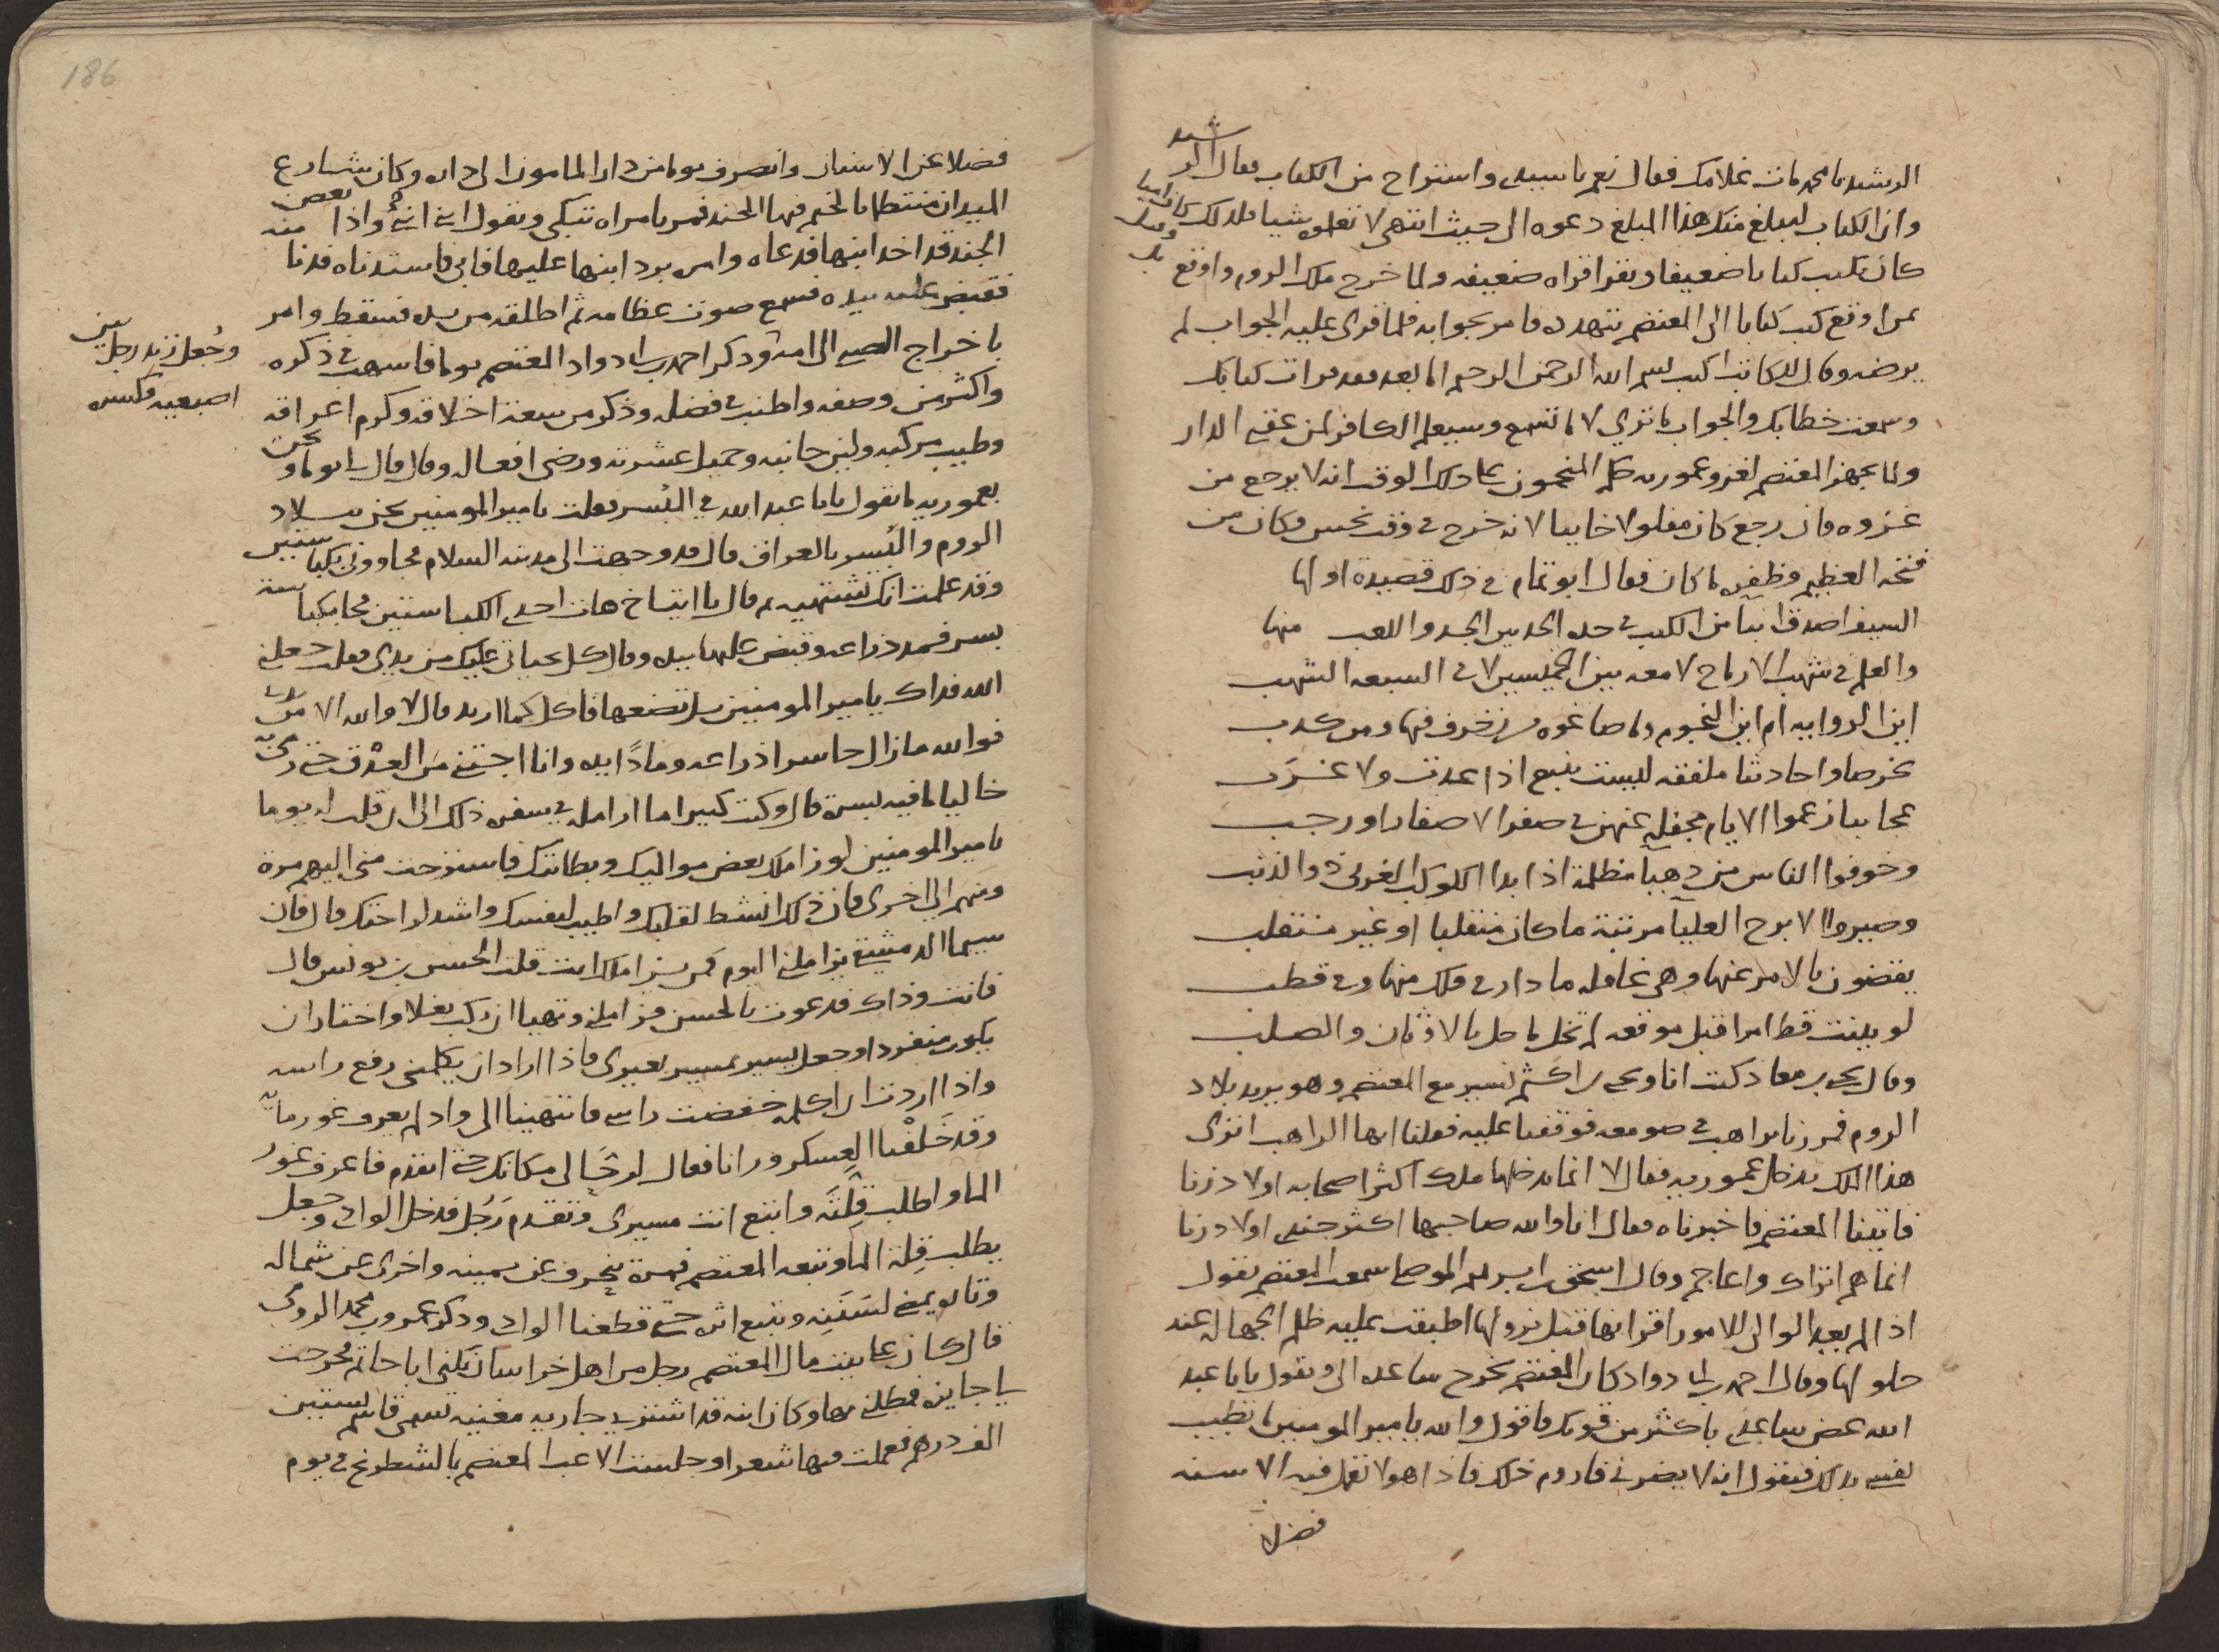 الرشيد يا محمد مات غلامك فقال نعم يا سيدي واستراح من الكتاب فقال الرشيد
وان الكتاب ليبلغ منك هذا المبلغ دعوه الى حيث انتهى لا تعلموه شيا فلذلك كان اميا
كان يكتب كتابا ضعيفا ويقرا قراه ضعيفه ولما خرج ملك الروم واوقع
بمن اوقع كتب كتابا الى المعتصم يتهدده فامر بجوابه فلما قرى عليه الجواب لم
يرضه وقال للكاتب اكتب بسم الله الرحمن الرحيم اما بعد فقد قرات كتابك
وسمعت خطابك والجواب ما ترى لا ما تسمع وسيعلم الكافر لمن عقبى الدار
ولما تجهز المعتصم لغزو عموريه حكم المنجمون على ذلك الوقت انه لا يرجع من
غزوه فان رجع كان مفلولا خايبا لانه خرج في وقت نحس فكان من
فتحه العظيم وظفره ما كان فقال ابو تمام في ذلك قصيدة اولها
السيف اصدق انبا من الكتب في حده الحد بين الجد واللعب منها
والعلم في شهب الارماح لامعه بين الخميسين لا في السبعه الشهب
اين الروايه ام اين النجوم وما صاغوه من زخرف فيها ومن كذب
تخرصا واحاديثا ملفقه ليست بنبع اذا عدت ولا غرب
عجايبا زعموا الايام مجفله عنهن في صفر الاصفار او رجب
وخوفوا الناس من دهيا مظلمة اذا بدا الكوكب الغربي ذو الذنب
وصيروا الابرج العليا مرتبة ما كان منقلبا او غير منقلب
يقضون بالامر عنها وهي غافله ما دار في فلك منها وفي قطب
لو بينت قط امرا قبل موقعه لم تخف ما حل بالاوثان والصلب
وقال يحيى بن معاذ كنت انا ويحيى بن اكثم نسير مع المعتصم وهو يريد بلاد
الروم فمررنا براهب في صومعه فوقفنا عليه فقلنا ايها الراهب اترى
هذا الملك يدخل عموريه فقال لا انما يدخلها ملك اكثر اصحابه اولاد زنا
فاتينا المعتصم فاخبرناه فقال انا والله صاحبها اكثر جندي اولاد زنا
انما هم اتراك واعاجم وقال اسحق بن ابرهيم الموصلي سمعت المعتصم يقول
اذا لم يعد الوالي للامور اقرانها قبل نزولها اطبقت عليه ظلم الجهاله عند
حلولها وقال احمد بن ابي دواد كان المعتصم يخرج ساعده الي ويقول يا با عبد
الله عض ساعدي باكثر من قوتك فاقول والله يا امير المومنين ما تطيب
نفسي بذلك فيقول انه لا يضرني فاروم ذلك فاذا هو لا تعمل فيه الاسنه
فضلا
فضلا عن الاسنان وانصرف يوما من دار المامون الى داره وكان شارع
الميدان منتظما بالخيم فيها الجند فمر بامراه تبكي وتقول ابني ابني واذا بعض
الجند قد اخذ ابنها فدعاه وامره برد ابنها عليها فابى فاستدناه فدنا منه
فقبض عليه بيده فسمع صوت عظامه ثم اطلقه من يده فسقط وامر
باخراج الصبي الى امه وذكر احمد بن ابي دواد المعتصم يوما فاسهب في ذكره
واكثر من وصفه واطنب في فضله وذكر من سعة اخلاقه وكرم اعراقه
وطيب مركبه ولين جانبه وجميل عشرته ورضى افعاله وقال قال لي يوما ونحن
بعموريه ما تقول يابا عبد الله في البسر فقلت يا امير المومنين نحن ببلاد
الروم والبسر بالعراق قال قد وجهت الى مدينه السلام فجاووني بكباستين
وقد علمت انك تشتهيه ثم قال يا ايتاخ هات احدى الكباستين فجا بكباسة
بسر فمد ذراعه وقبض عليها بيده وقال كل بحياتي عليك من يدي فقلت جعلني
الله فداك يا امير المومنين بل تضعها فاكل كما اريد قال لا والله الا من يدي
فوالله ما زال حاسرا ذراعه ومادا يده وانا اجتني من العذق حتى رمى به
خاليا ما فيه بسرة قال وكنت كثيرا ما ازامله في سفره ذلك الى ان قلت له يوما
يا امير المومنين لو زاملك بعض مواليك وبطانتك فاسترحت مني اليهم مرة
ومنهم الي اخرى فان ذلك انشط لقلبك واطيب لنفسك واشد لراحتك قال فان
سيما الدمشقي يزاملني اليوم فمن يزاملك انت قلت الحسن بن يونس قال
فانت وذاك فدعوت بالحسن فزاملني وتهيا ان ركب بغلا واختار ان
يكون منفردا وجعل يسير بمسير بعيري فاذا اراد ان يكلمني رفع راسه
واذا اردت ان اكلمه خفضت راسي فانتهينا الى واد لم يعرف غور مايه
وقد خلفنا العسكر ورانا فقال لرحالي مكانك حتى اتقدم فاعرف غور
الما واطلب قلته واتبع انت مسيري وتقدم رجل فدخل الوادي وجعل
يطلب قلة الما وتبعه المعتصم فمرة ينحرف عن يمينه واخرى عن شماله
وتارة يمضي لسننه ونتبع اثره حتى قطعنا الوادي وذكر عمرو بن محمد الرومي
قال كان على بيت مال المعتصم رجل من اهل خراسان يكنى ابا حاتم فخرجت
لي جايزه فمطلني بها وكان ابنه قد اشترى جاريه مغنيه تسمى قاسم بستين
الف درهم فعملت فيها شعرا وجلست الاعب المعتصم بالشطرنج في يوم
وجعل زند رجل بين
اصبعيه فكسره
186